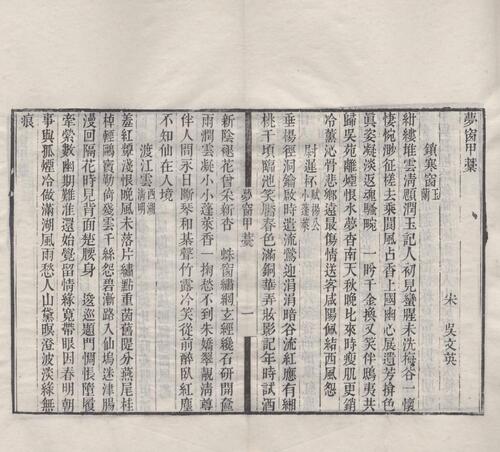 夢窗甲藳
宋 吳文英
鎖寒窗 玉蘭
紺縷堆雲清顋潤玉記人初見蠻腥未洗梅谷一懷
悽惋渺征槎去乘閬風占香上國幽心展遺芳揜色
眞姿凝淡返魂騷畹 一盼千金換又笑伴鴟夷共
歸吳苑離煙恨水夢杳南天秋晚比來時瘦肌更銷
冷薰沁骨悲鄉遠最傷情送客咸陽佩結西風怨
尉遲杯 賦楊公小蓬萊
垂楊徑洞鑰啟時遣流鶯迎涓涓暗谷流紅應有緗
桃千頃臨池笑靨春色滿銅華弄妝影記年時試酒
夢窗甲藳 一
湖陰褪花曾采新杏 蛛窗繡網玄經纔石硏開奩
雨潤雲凝小小蓬萊香一掬愁不到朱嬌翠靚清尊
伴人間永日斷琴和棊聲竹露冷笑從前醉臥紅塵
不知仙在人境
渡江雲 西湖清明
羞紅顰淺恨晚風未落片繡點重茵舊隄分燕尾桂
棹輕鷗寶勒倚殘雲千絲怨碧漸路入仙塢迷津腸
漫回隔花時見背面楚腰身 逡巡題門惆悵墮履
牽縈數幽期難準還始覺留情緣寬帶眼因春明朝
事與孤煙冷做滿湖風雨愁人山黛暝澄波淡綠無
痕